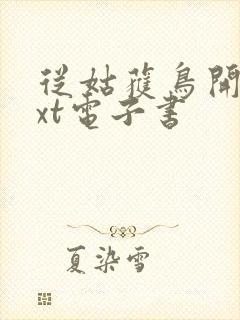 從姑獲鳥開
xt電子書
夏染雪